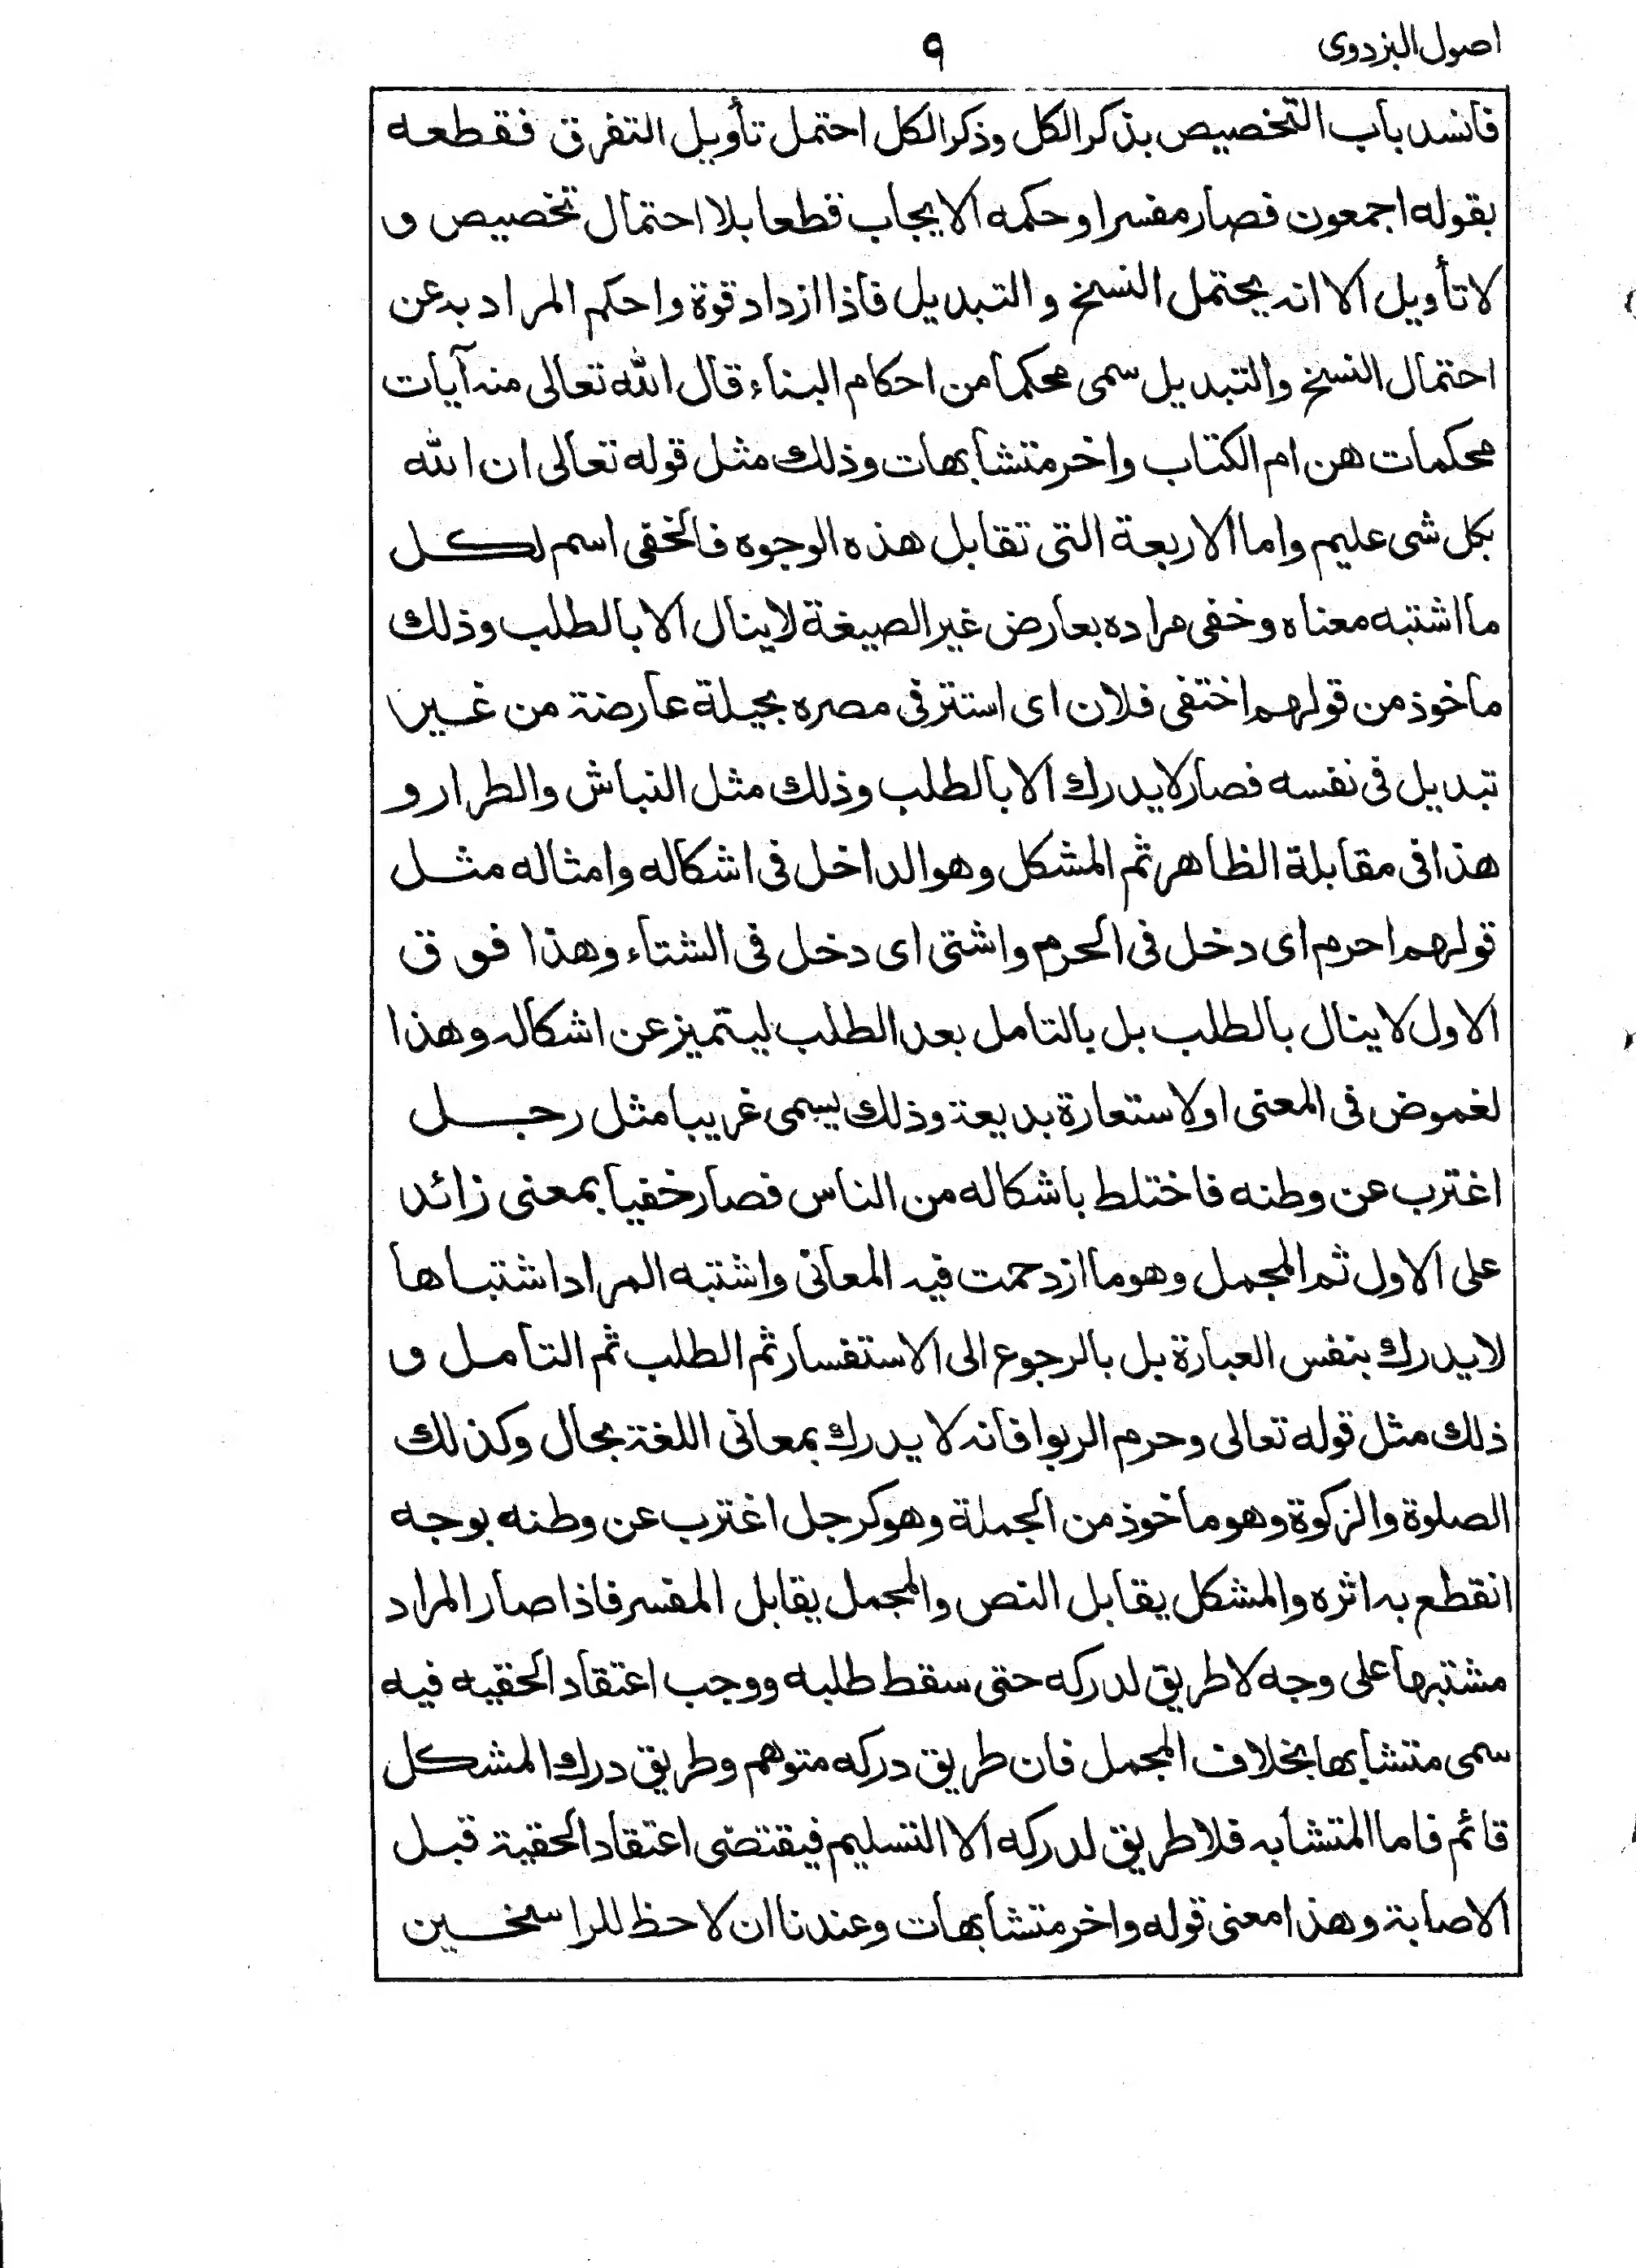 اصول البزدوى
٩
فانسد باب التخصيص بذكر الكل وذكر الكل احتمل تأويل التفرق فقطعه
بقوله اجمعون فصار مفسرا وحكمه الايجاب قطعا بلا احتمال تخصيص و
لا تأويل الا انه يحتمل النسخ والتبديل فاذا ازداد قوة واحكم المراد به عن
احتمال النسخ والتبديل سمى محكما من احكام البناء قال الله تعالى منه آيات
محكمات هن ام الكتاب واخر متشابهات وذلك مثل قوله تعالى ان الله
بكل شى عليم واما الاربعة التى تقابل هذه الوجوه فالخفى اسم لكل
ما اشتبه معناه وخفى مراده بعارض غير الصيغة لا ينال الا بالطلب وذلك
ماخوذ من قولهم اختفى فلان اى استتر فى مصره بحيلة عارضة من غير
تبديل فى نفسه فصار لا يدرك الا بالطلب وذلك مثل النباش والطرار و
هذا فى مقابلة الظاهر ثم المشكل وهو الداخل فى اشكاله وامثاله مثل
قولهم احرم اى دخل فى الحرم واشتى اى دخل فى الشتاء وهذا فوق
الاول لا ينال بالطلب بل بالتامل بعد الطلب ليتميز عن اشكاله وهذا
لغموض فى المعنى او لاستعارة بديعة وذلك يسمى غريبا مثل رجل
اغترب عن وطنه فاختلط باشكاله من الناس فصار خفيا بمعنى زائد
على الاول ثم المجمل وهو ما ازدحمت فيه المعانى واشتبه المراد اشتباها
لا يدرك بنفس العبارة بل بالرجوع الى الاستفسار ثم الطلب ثم التامل و
ذلك مثل قوله تعالى وحرم الربوا فانه لا يدرك بمعانى اللغة بحال وكذلك
الصلوة والزكوة وهو ماخوذ من الجملة وهو كرجل اغترب عن وطنه بوجه
انقطع به اثره والمشكل يقابل النص والمجمل يقابل المفسر فاذا صار المراد
مشتبها على وجه لا طريق لدركه حتى سقط طلبه ووجب اعتقاد الحقيه فيه
سمى متشابها بخلاف المجمل فان طريق دركه متوهم وطريق درك المشكل
قائم فاما المتشابه فلا طريق لدركه الا التسليم فيقتضى اعتقاد الحقية قبل
الاصابة وهذا معنى قوله واخر متشابهات وعندنا ان لا حظ للراسخين